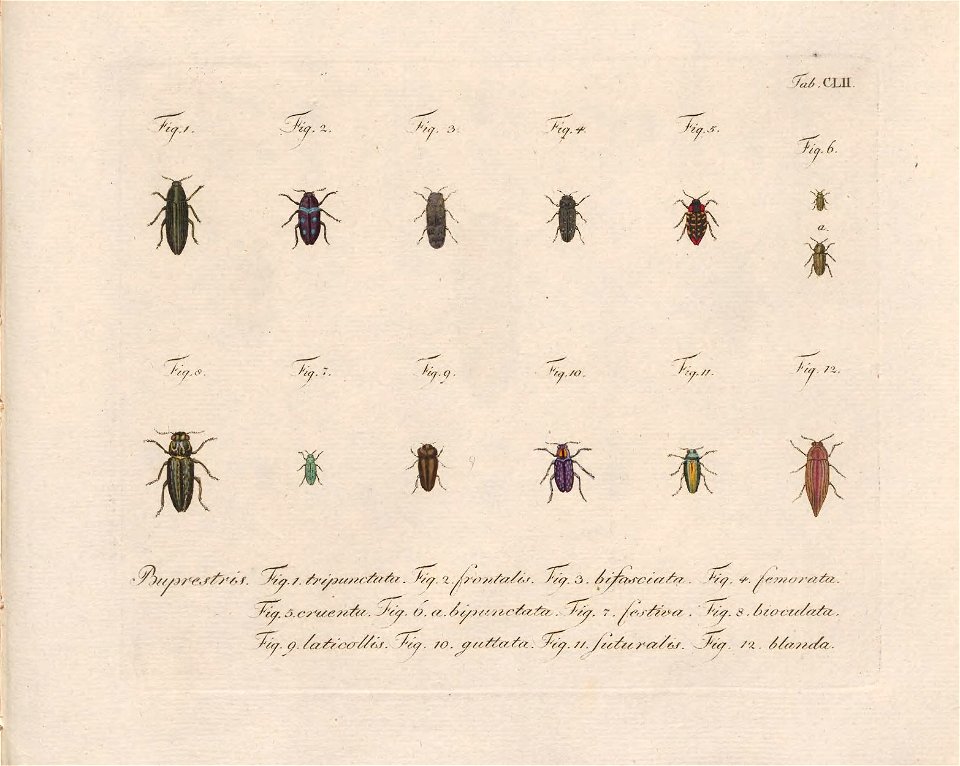 Tab. CLII.
Fig. 1. Fig. 2. Fig. 3. Fig. 4. Fig. 5.
Fig. 6.
a.
Fig. 8. Fig. 7. Fig. 9. Fig. 10. Fig. 11. Fig. 12.
9
Buprestris. Fig. 1. tripunctata. Fig. 2 frontalis. Fig. 3. bifasciata. Fig. 4. femorata.
Fig. 5. cruenta. Fig. 6. a. bipunctata. Fig. 7. festiva. Fig. 8. bioculata.
Fig. 9. laticollis. Fig. 10. guttata. Fig. 11. suturalis. Fig. 12. blanda.